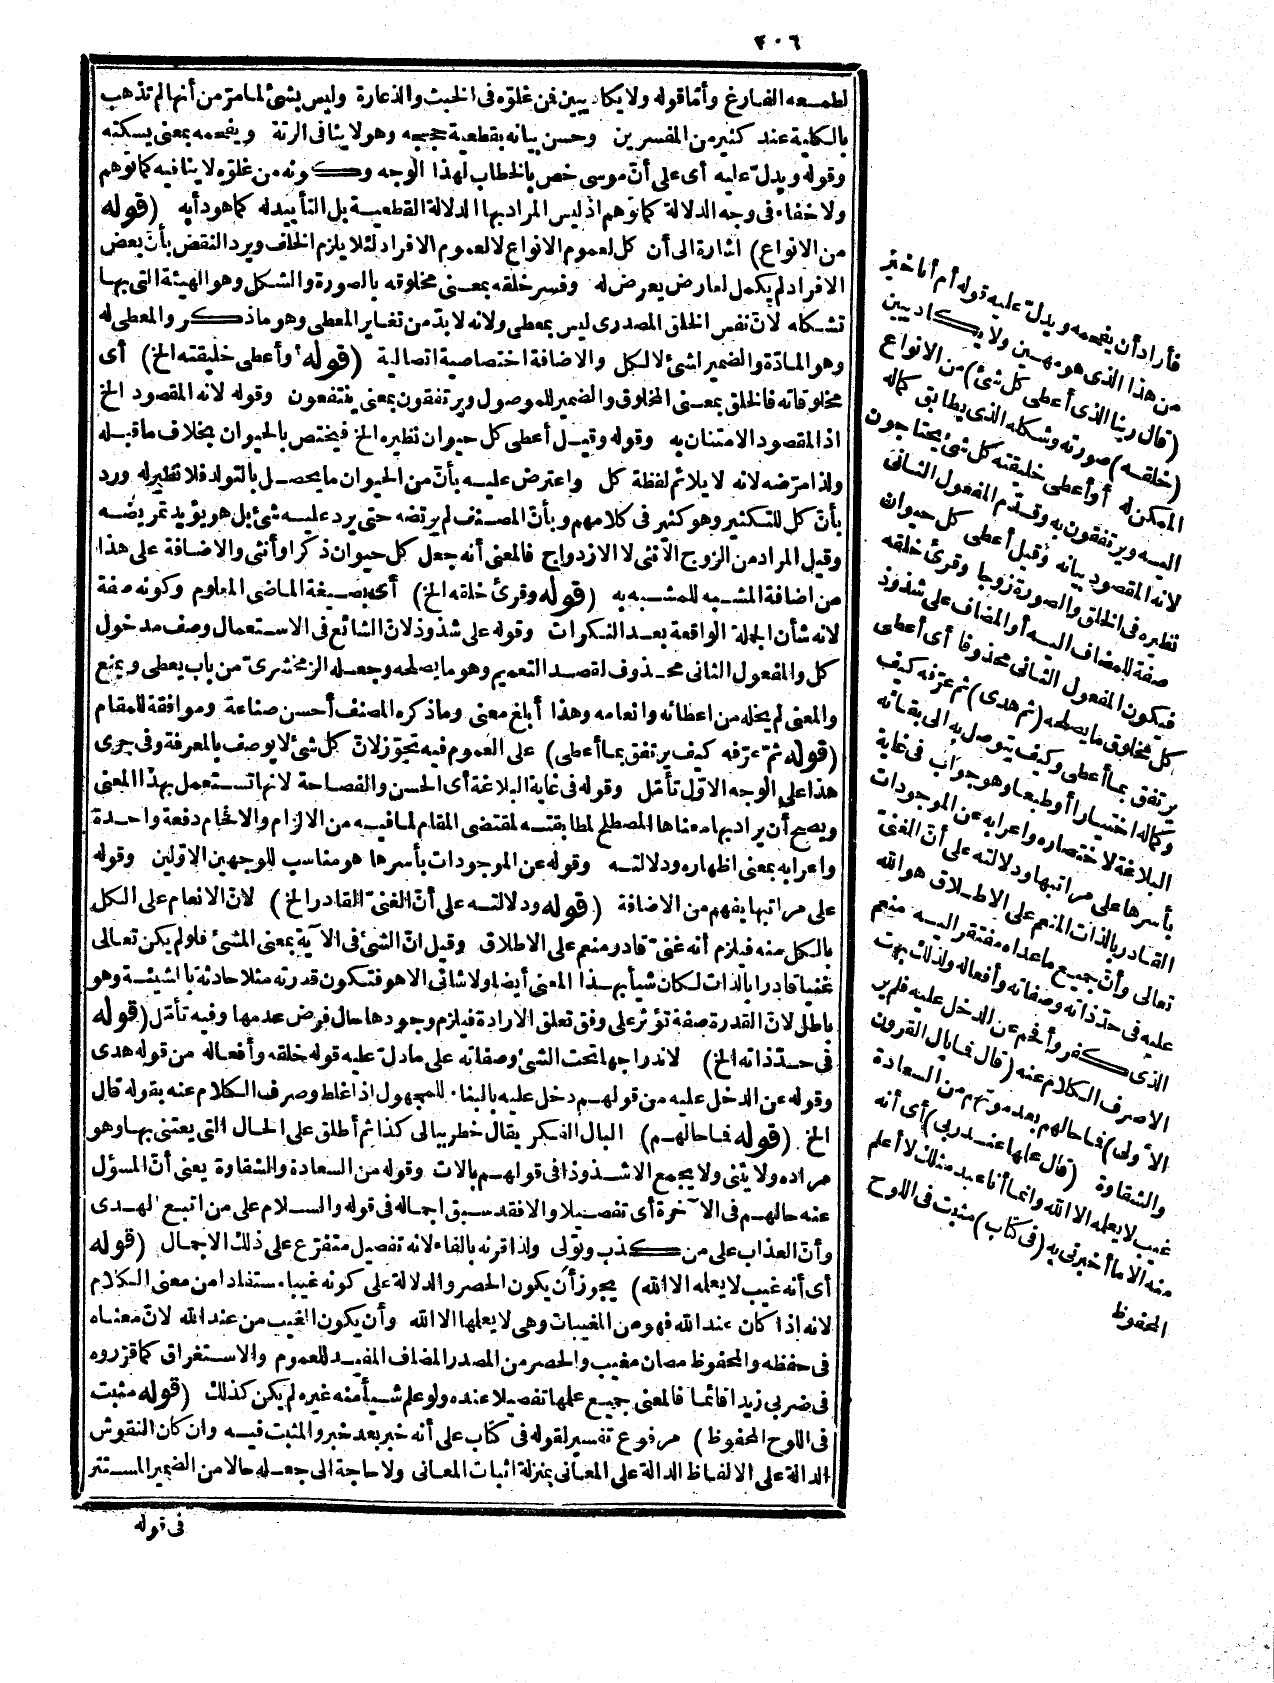 ٢٠٦
لطمعه الفارغ وأما قوله ولا يكاد يبين فمن غلوّه فى الخبث والذعارة وليس بشئ لما مرّ من أنها لم تذهب
بالكلية عند كثير من المفسرين وحسن بيانه بقطعية حججه وهو لا ينافى الرتة ويفحمه بمعنى يسكته
وقوله ويدلّ عليه أى على أنّ موسى خص بالخطاب لهذا الوجه وكونه من غلوّه لا ينافيه كما توهم
ولا خفاء فى وجه الدلالة كما توهم اذ ليس المراد بها الدلالة القطعية بل التأييد له كما هو دأبه (قوله
من الانواع) اشارة الى أن كل لعموم الانواع لا لعموم الافراد لئلا يلزم الخلف ويرد النقض بأنّ بعض
الافراد لم يكمل لعارض يعرض له وفسر خلقه بمعنى مخلوقه بالصورة والشكل وهو الهيئة التى بها
تشكله لأنّ نفس الخلق المصدرى ليس بمعطى ولانه لا بدّ من تغاير المعطى وهو ما ذكر والمعطى له
وهو المادّة والضمير لشئ لا لكل والاضافة اختصاصية اتصالية (قوله أو أعطى خليقته الخ) أى
مخلوقاته فالخلق بمعنى المخلوق والضمير للموصول ويرتفقون بمعنى ينتفعون وقوله لانه المقصود الخ
اذ المقصود الامتنان به وقوله وقيل أعطى كل حيوان نظيره الخ فيختص بالحيوان بخلاف ما قبله
ولذا مرّضه لانه لا يلائم لفظة كل واعترض عليه بأنّ من الحيوان ما يحصل بالتولد فلا نظير له ورد
بأنّ كل للتكثير وهو كثير فى كلامهم وبأنّ المصنف لم يرتضه حتى يرد عليه شئ بل هو يؤيد تمريضه
وقيل المراد من الزوج الانثى لا الازدواج فالمعنى أنه جعل كل حيوان ذكرا وأنثى والاضافة على هذا
من اضافة المشبه للمشبه به (قوله وقرئ خلقه الخ) أى بصيغة الماضى المعلوم وكونه صفة
لانه شأن الجملة الواقعة بعد النكرات وقوله على شذوذ لانّ الشائع فى الاستعمال وصف مدخول
كل والمفعول الثانى محذوف لقصد التعميم وهو ما يصلحه وجعله الزمخشرىّ من باب يعطى ويمنع
والمعنى لم يخله من اعطائه وانعامه وهذا أبلغ معنى وما ذكره المصنف أحسن صناعة وموافقة للمقام
(قوله ثمّ عرّفه كيف يرتفق بما أعطى) على العموم فيه تجوّز لانّ كل شئ لا يوصف بالمعرفة وفى جرى
هذا على الوجه الاوّل تأمّل وقوله فى غاية البلاغة أى الحسن والفصاحة لانها تستعمل بهذا المعنى
ويصح أن يراد بها معناها المصطلح لمطابقته لمقتضى المقام لما فيه من الالزام والافحام دفعة واحدة
واعرابه بمعنى اظهاره ودلالته وقوله عن الموجودات بأسرها هو مناسب للوجهين الاوّلين وقوله
على مراتبها يفهم من الاضافة (قوله ودلالته على أنّ الغنىّ القادر الخ) لانّ الانعام على الكل
بالكل منه فيلزم أنه غنىّ قادر منعم على الاطلاق وقيل انّ الشئ فى الآية بمعنى المشئ فلو لم يكن تعالى
غنيا قادرا بالذات لكان شيأ بهذا المعنى أيضا ولا شائى الا هو فتكون قدرته مثلا حادثة بالمشيئة وهو
باطل لانّ القدرة صفة تؤثر على وفق تعلق الارادة فيلزم وجودها حال فرض عدمها وفيه تأمّل (قوله
فى حدّ ذاته الخ) لاندراجها تحت الشئ وصفاته على ما دلّ عليه قوله خلقه وأفعاله من قوله هدى
وقوله عن الدخل عليه من قولهم دخل عليه بالبناء للمجهول اذا غلط وصرف الكلام عنه بقوله قال
الخ (قوله فما حالهم) البال الفكر يقال خطر ببالى كذا ثم أطلق على الحال التى يعتنى بها وهو
مراده ولا يثنى ولا يجمع الا شذوذا فى قولهم بالات وقوله من السعادة والشقاوة يعنى أنّ المسؤل
عنه حالهم فى الآخرة أى تفصيلا والا فقد سبق اجماله فى قوله والسلام على من اتبع الهدى
وأنّ العذاب على من كذب وتولى ولذا قرنه بالفاء لانه تفصيل متفرّع على ذلك الاجمال (قوله
أى أنه غيب لا يعلمه الا الله) يجوز أن يكون الحصر والدلالة على كونه غيبا مستفادا من معنى الكلام
لانه اذا كان عند الله فهو من المغيبات وهى لا يعلمها الا الله وأن يكون الغيب من عند الله لانّ معناه
فى حفظه والمحفوظ مصان مغيب والحصر من المصدر المضاف المفيد للعموم والاستغراق كما قرّروه
فى ضربى زيدا قائما فالمعنى جميع علمها تفصيلا عنده ولو علم شيأ منه غيره لم يكن كذلك (قوله مثبت
فى اللوح المحفوظ) مرفوع تفسير لقوله فى كتاب على أنه خبر بعد خبر والمثبت فيه وان كان النقوش
الدالة على الالفاظ الدالة على المعانى بمنزلة اثبات المعانى ولا حاجة الى جعله حالا من الضمير المستتر
فى قوله
فأراد أن يفحمه ويدلّ عليه قوله أم أنا خير
من هذا الذى هو مهين ولا يكاد يبين
(قال ربنا الذى أعطى كل شئ) من الانواع
(خلقه) صورته وشكله الذى يطابق كماله
الممكن له أو أعطى خليقته كل شئ يحتاجون
اليه ويرتفقون به وقدّم المفعول الثانى
لانه المقصود بيانه وقيل أعطى كل حيوان
نظيره فى الخلق والصورة زوجا وقرئ خلقه
صفة للمضاف اليه أو المضاف على شذوذ
فيكون المفعول الثانى محذوفا أى أعطى
كل مخلوق ما يصلحه (ثم هدى) ثم عرّفه كيف
يرتفق بما أعطى وكيف يتوصل به الى بقائه
وكماله اختيارا أو طبعا وهو جواب فى غاية
البلاغة لاختصاره واعرابه عن الموجودات
بأسرها على مراتبها ودلالته على أنّ الغنىّ
القادر بالذات المنعم على الاطلاق هو الله
تعالى وأنّ جميع ما عداه مفتقر اليه منعم
عليه فى حدّ ذاته وصفاته وأفعاله ولذلك بهت
الذى كفر وأفحم عن الدخل عليه فلم ير
الا صرف الكلام عنه (قال فما بال القرون
الأولى) فما حالهم بعد موتهم من السعادة
والشقاوة (قال علمها عند ربى) أى أنه
غيب لا يعلمه الا الله وانما أنا عبد مثلك لا أعلم
منه الا ما أخبرنى به (فى كتاب) مثبت فى اللوح
المحفوظ